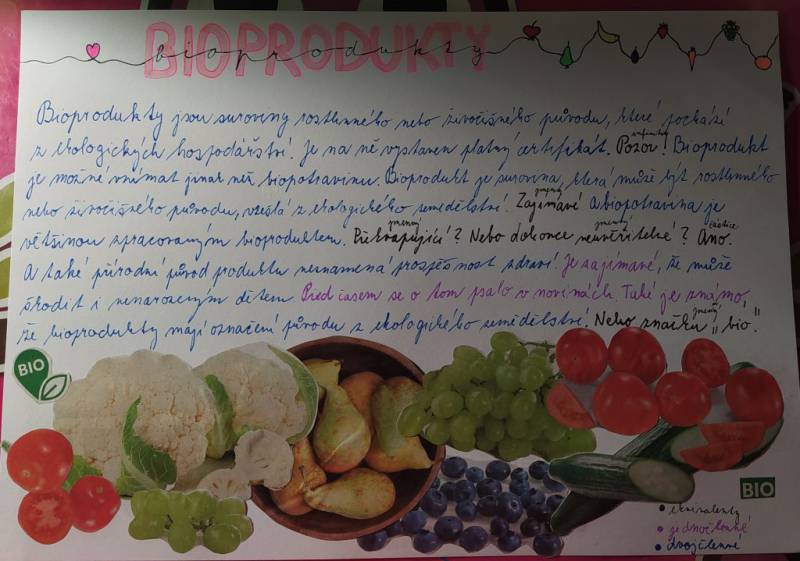 BIOPRODUKTY
bioprodukty
Bioprodukty jsou suroviny rostlinného nebo živočišného původu, které pochází
z ekologických hospodářství. Je na ně vystaven platný certifikát. Pozor! Bioprodukt
infinitiv
je možné vnímat jinak než biopotravinu. Bioprodukt je surovina, která může být rostlinného
nebo živočišného původu, vzešlá z ekologického zemědělství. Zajímavé a biopotravina je
jmenný
většinou zpracovaným bioproduktem. Překvapující? Nebo dokonce neuvěřitelné? Ano.
jmenný jmenný částice
A také přírodní původ produktu neznamená prospěšnost zdraví. Je zajímavé, že může
škodit i nenarozeným dětem. Před časem se o tom psalo v novinách. Také je známo,
že bioprodukty mají označení původu z ekologického zemědělství. Nebo značku „bio."
jmenný
BIO
BIO
• ekvivalenty
• jednočlenné
• dvojčlenné